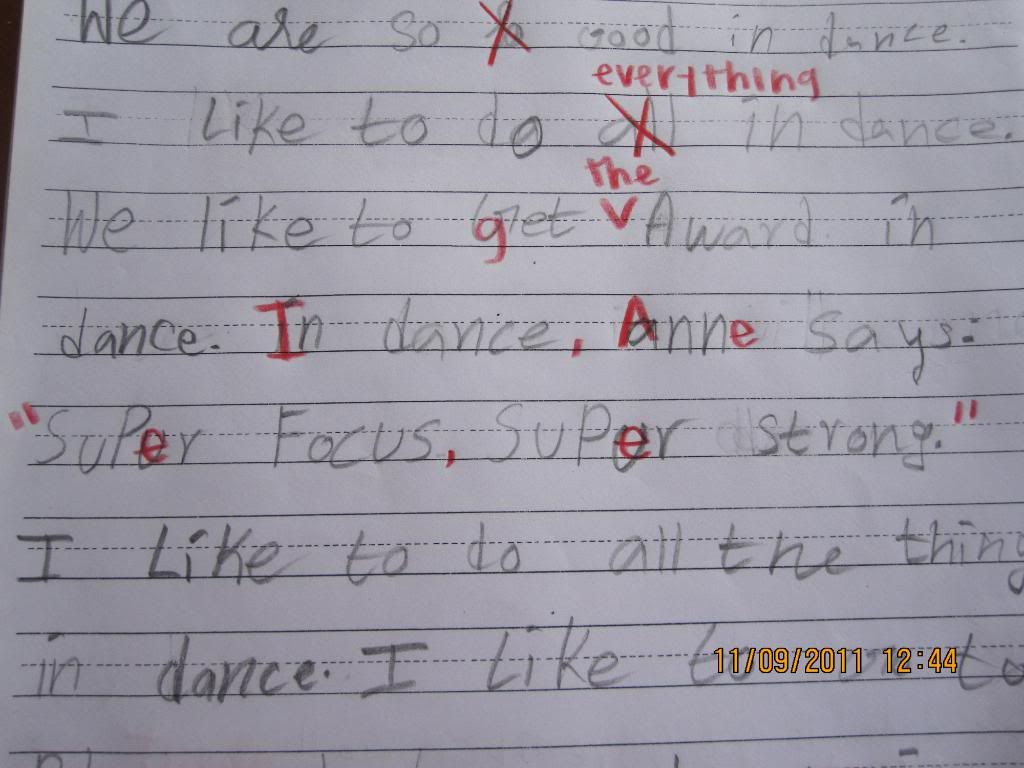 We are so good in dance.
everything
I like to do all in dance.
the
We like to get v Award in
dance. In dance, Anne says:
"Super Focus, Super strong."
I Like to do all the thing
in dance. I like to to
11/09/2011 12:44